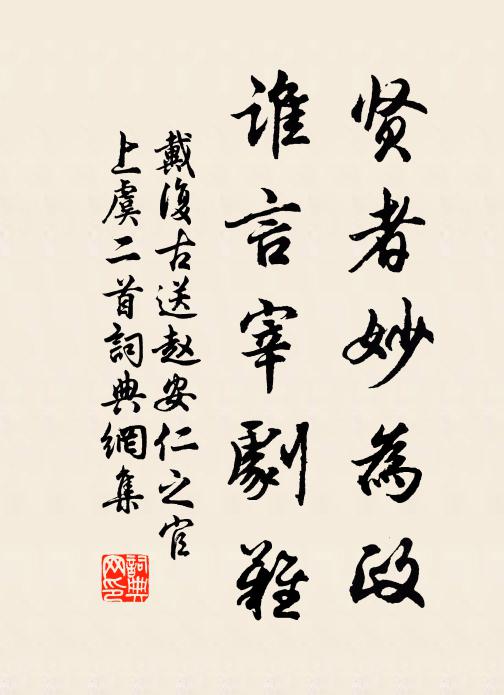 贤者妙為政
谁言宰劇難
戴復古送赵安仁之官
上虞二首詞典網集
詞典
网印